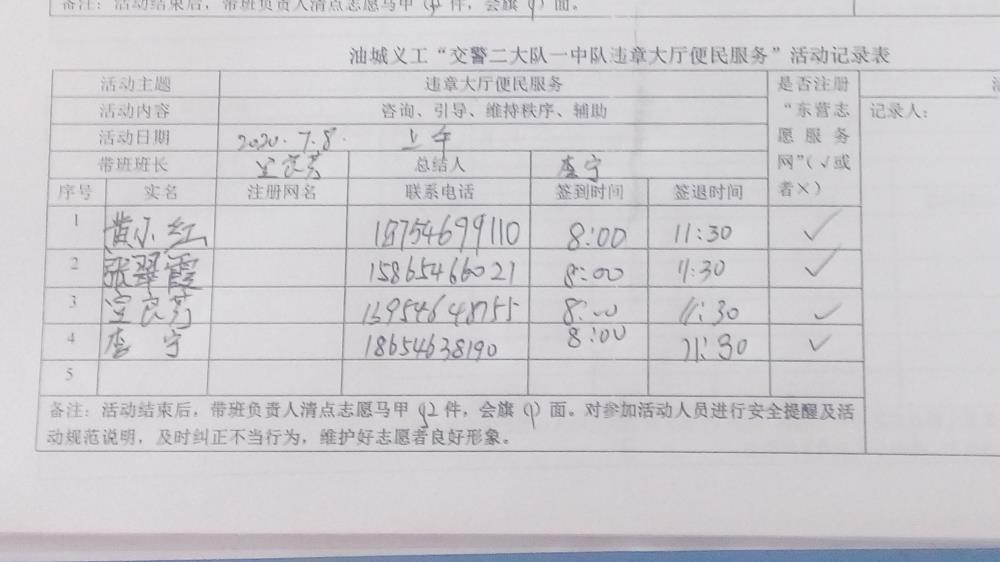 备注：活动结束后，带班负责人清点志愿马甲 件，会旗 面。
油城义工“交警二大队一中队违章大厅便民服务”活动记录表
活动主题 违章大厅便民服务 是否注册“东营志愿服务网”(√或者×)
活动内容 咨询、引导、维持秩序、辅助 记录人：
活动日期 2020.7.8. 上午
带班班长 良芳 总结人 李宁
序号 实名 注册网名 联系电话 签到时间 签退时间
1 黄小红 15754699110 8:00 11:30 ✓
2 张翠霞 15865466021 8:00 11:30 ✓
3 良芳 13954648755 8:00 11:30 ✓
4 李宁 18654638190 8:00 11:30 ✓
5
备注：活动结束后，带班负责人清点志愿马甲 92 件，会旗 面。对参加活动人员进行安全提醒及活
动规范说明，及时纠正不当行为，维护好志愿者良好形象。